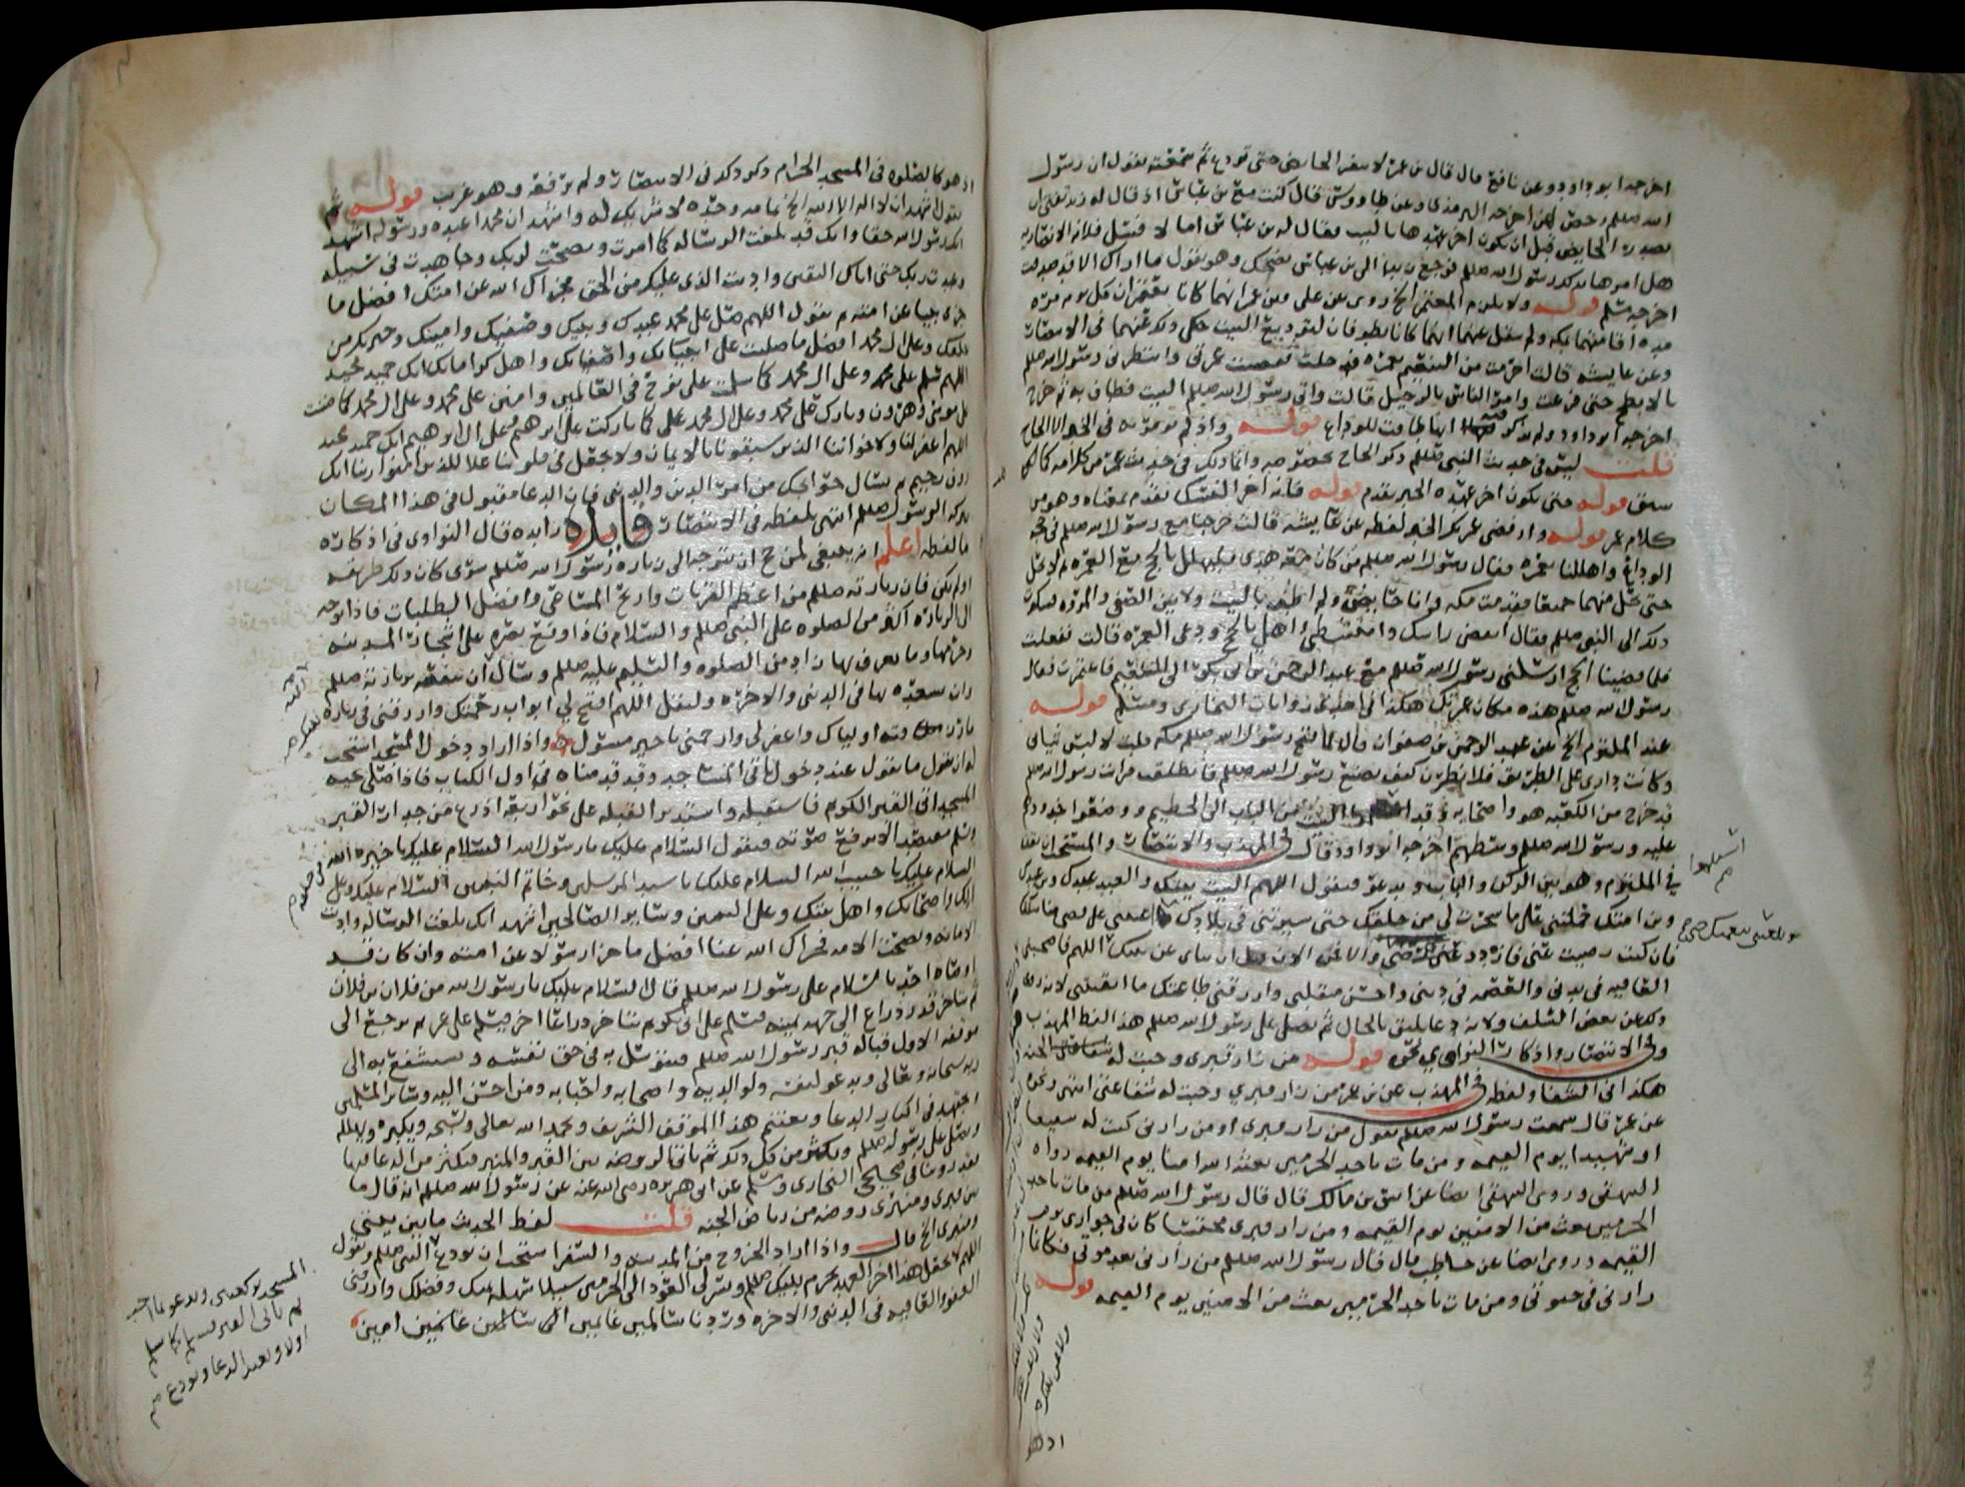 اخرجه ابو داود وعن نافع قال قال بن عمر لا ينفر الحاج حتى تودع ثم سمعته يقول ان رسول
الله صلعم رخص لهن اخرجه الترمذي وعن طاووس قال كنت مع بن عباس اذ قال له زيد تفتي ان
تصدر الحايض قبل ان يكون اخر عهدها بالبيت فقال له بن عباس اما لا فسل فلانه الانصاريه
هل امرها بذلك رسول الله صلعم فرجع زيد الى بن عباس يضحك وهو يقول ما اراك الا قد صدقت
اخرجه مسلم قوله ولا يلزم المعتمر الخ روي عن علي وبن عمر انهما كانا يعتمران كل يوم مره
مده اقامتهما بمكه ولم ينقل عنهما انهما كانا يطوفان لتوديع البيت حكى ذلك عنهما في الانتصار
وعن عايشه قالت احرمت من التنعيم بعمره فدخلت فقضيت عمرتي وانتظرني رسول الله صلعم
بالابطح حتى فرغت وامر الناس بالرحيل قالت واتى رسول الله صلعم البيت فطاف به ثم خرج
اخرجه ابو داود ولم يذكر فيه انها طافت للوداع قوله
قلت ليس في حديث النبي صلعم ذكر الحاج بخصوصه وانما ذلك في حديث عمر من كلامه كما
سبق قوله حتى يكون اخر عهده الخبر تقدم قوله فانه اخر النسك تقدم بمعناه وهو من
كلام عمر قوله وارفضي عمرتك الخبر لفظه عن عايشه قالت خرجنا مع رسول الله صلعم في حجه
الوداع واهللنا بعمره فقال رسول الله صلعم من كان معه هدي فليهلل بالحج مع العمره ثم لا يحل
حتى يحل منهما جميعا فقدمت مكه وانا حايض ولم اطف بالبيت ولا بين الصفى والمروه فشكوت
ذلك الى النبي صلعم فقال انقضي راسك وامتشطي واهلي بالحج ودعي العمره قالت ففعلت
فلما قضينا الحج ارسلني رسول الله صلعم مع عبد الرحمن بن ابي بكر الى التنعيم فاعتمرت فقال
رسول الله صلعم هذه مكان عمرتك هكذا في احدى روايات البخاري ومسلم قوله
عند الملتزم الخ عن عبد الرحمن بن صفوان قال لما فتح رسول الله صلعم مكه قلت لالبسن ثيابي
وكانت داري على الطريق فلانظرن كيف يصنع رسول الله صلعم فانطلقت فرايت رسول الله صلعم
قد خرج من الكعبه هو واصحابه وقد استلموا البيت من الباب الى الحطيم ووضعوا خدودهم
عليه ورسول الله صلعم وسطهم اخرجه ابو داود قال في المهذب والانتصار والمستحب ان يقف
في الملتزم وهو بين الركن والباب ويدعو فيقول اللهم البيت بيتك والعبد عبدك وبن عبدك
وبن امتك حملتني على ما سخرت لي من خلقك حتى سيرتني في بلادك
فان كنت رضيت عني فازدد عني رضى والا فمن الان قبل ان تناى عن بيتك اللهم فاصحبني
العافيه في بدني والعصمه في ديني واحسن منقلبي وارزقني طاعتك ما ابقيتني لانه روي
ذلك عن بعض السلف ولانه دعا يليق بالحال ثم يصلي على رسول الله صلعم هذا لفظ المهذب
وفي الانتصار واذكار النواوي نحوه قوله من زار قبري وجبت له شفاعتي الخبر
هكذا في الشفا ولفظه في المهذب عن بن عمر من زار قبري وجبت له شفاعتي انتهى ونحوه
عن عمر قال سمعت رسول الله صلعم يقول من زار قبري او من زارني كنت له شفيعا
او شهيدا يوم القيمه ومن مات باحد الحرمين بعثه الله امنا يوم القيمه رواه
البيهقي وروى البيهقي ايضا عن انس بن مالك قال قال رسول الله صلعم من مات باحد
الحرمين بعث من الامنين يوم القيمه ومن زار قبري محتسبا كان في جواري يوم
القيمه وروى ايضا عن حاطب قال قال رسول الله صلعم من زارني بعد موتي فكانما
زارني في حيوتي ومن مات باحد الحرمين بعث من الامنين يوم القيمه قوله
اذ هو كالصلوه في المسجد الحرام ذكر ذلك في الانتصار ولم يرفعه وهو غريب قوله ثم
يقول اشهد ان لا اله الا الله الخ تمامه وحده لا شريك له واشهد ان محمدا عبده ورسوله اشهد
انك رسول الله حقا وانك قد بلغت الرساله كما امرت ونصحت لربك وجاهدت في سبيله
وعبدت ربك حتى اتاك اليقين واديت الذي عليك من الحق فجزاك الله عن امتك افضل ما
جزى نبيا عن امته ثم يقول اللهم صل على محمد عبدك ونبيك وصفيك وامينك وخيرتك من
خلقك وعلى ال محمد افضل ما صليت على انبيائك واصفيائك واهل كراماتك انك حميد مجيد
اللهم سلم على محمد وعلى ال محمد كما سلمت على نوح في العالمين وامنن على محمد وعلى ال محمد كما مننت
على موسى وهرون وبارك على محمد وعلى ال محمد كما باركت على ابرهيم وعلى ال ابرهيم انك حميد مجيد
اللهم اغفر لنا ولاخواننا الذين سبقونا بالايمان ولا تجعل في قلوبنا غلا للذين امنوا ربنا انك
رؤف رحيم ثم يسال حوائجك من امر الدين والدنيا فان الدعا مقبول في هذا المكان
ببركه الرسول صلعم انتهى بلفظه في الانتصار فايده زايده قال النواوي في اذكاره
ما لفظه اعلم انه ينبغي لمن حج ان يتوجه الى زياره رسول الله صلعم سوى كان ذلك طريقه
اولم يكن فان زيارته صلعم من اعظم القربات واربح المساعي وافضل الطلبات فاذا توجه
الى الزياره اكثر من الصلوه على النبي صلعم والسلام فاذا وقع بصره على اشجار المدينه
وحرمها وما يعرف بها زاد من الصلوه والتسليم عليه صلعم وسال ان ينفعه بزيارته صلعم
وان يسعده بها في الدنيا والاخره وليقل اللهم افتح لي ابواب رحمتك وارزقني في زياره
ما رزقته اولياك واغفر لي وارحمني يا خير مسئول واذا اراد دخول المسجد استحب
له ان يقول ما يقول عند دخول باقي المساجد وقد قدمناه في اول الكتاب فاذا صلى تحيه
المسجد اتى القبر الكريم فاستقبله واستدبر القبله على نحو اربعه اذرع من جدار القبر
وسلم مقتصدا لا يرفع صوته فيقول السلام عليك يا رسول الله السلام عليك يا خيره الله
السلام عليك يا حبيب الله السلام عليك يا سيد المرسلين وخاتم النبيين السلام عليك وعلى
الك واصحابك واهل بيتك وعلى النبيين وساير الصالحين اشهد انك بلغت الرساله واديت
الامانه ونصحت الامه فجزاك الله عنا افضل ما جزا رسولا عن امته وان كان قد
اوصاه احد بالسلام على رسول الله صلعم قال السلام عليك يا رسول الله من فلان بن فلان
ثم يتاخر قدر ذراع الى جهه يمينه فيسلم على ابي بكر ثم يتاخر ذراعا اخر فيسلم على عمر ثم يرجع الى
موقفه الاول قباله قبر رسول الله صلعم فيتوسل به في حق نفسه ويستشفع به الى
ربه سبحانه وتعالى ويدعو لنفسه ولوالديه واصحابه واحبابه ومن احسن اليه وساير المسلمين
ويجتهد في اكثار الدعا ويغتنم هذا الموقف الشريف ويحمد الله تعالى ويسبحه ويكبره ويهلله
ويصلي على رسوله صلعم ويكثر من كل ذلك ثم ياتي الروضه بين القبر والمنبر فيكثر من الدعا فيها
فقد روينا في صحيحي البخاري ومسلم عن ابي هريره رضي الله عنه عن رسول الله صلعم انه قال ما
بين قبري ومنبري روضه من رياض الجنه قلت لفظ الحديث ما بين بيتي
ومنبري الخ قال واذا اراد الخروج من المدينه والسفر استحب ان يودع النبي صلعم ويقول
اللهم لا تجعل هذا اخر العهد بحرم نبيك صلعم ويسر لي العود الى الحرمين سبيلا سهله بمنك وفضلك وارزقني
العفو والعافيه في الدنيا والاخره وردنا سالمين غانمين الى سالمين غانمين امين
المسجد بركعتين ويدعو بما احب
ثم ياتي القبر فيسلم كما سلم
اولا ويعيد الدعا ويودع